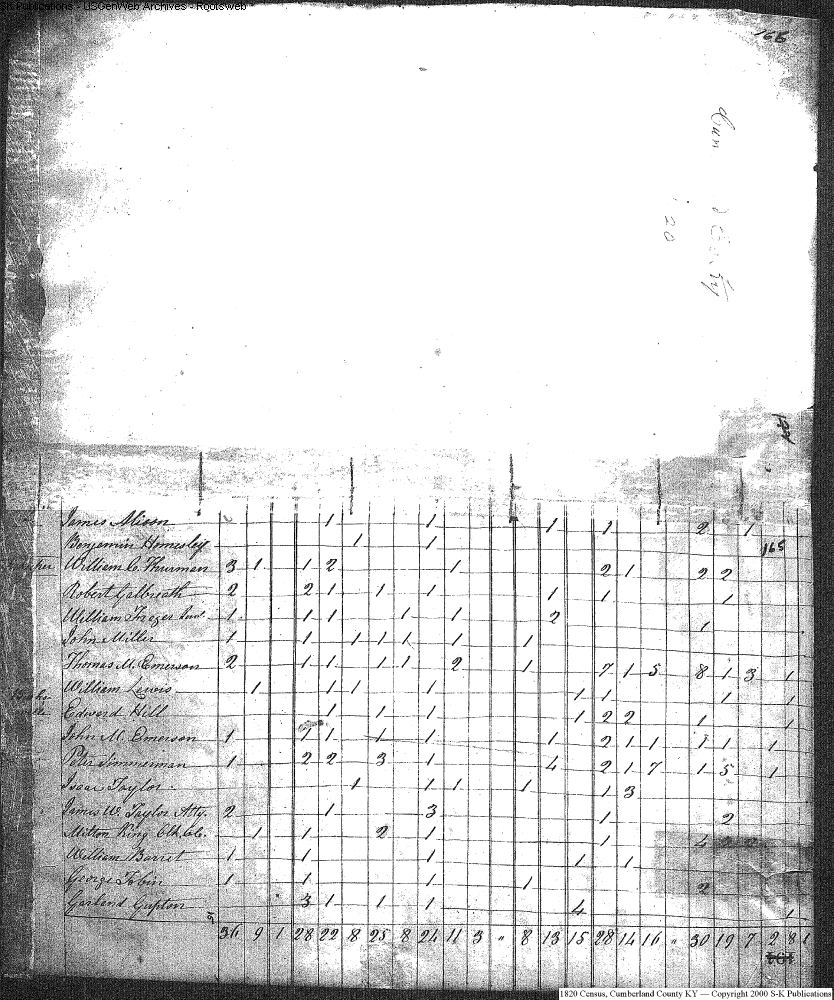 S-K Publications - USGenWeb Archives - Rootsweb
166
Cum
'20
184
James Mixon 1 1 1 1 2 1
Benjamin Homesley 1 1
165
William C. Thurman 3 1 1 2 1 2 1 2 2
Robert Galbreath 2 2 1 1 1 1 1 1
William 1 1 1 1 1 2 1
John Miller 1 1 1 1 1 1 1
Thomas M. Emerson 2 1 1 1 1 2 1 7 1 5 8 1 3 1
William Lewis 1 1 1 1 1 1 1 1
Edward Hill 1 1 1 1 2 2 1
John M. Emerson 1 1 1 1 1 1 2 1 1 1 1 1
Peter Simmerman 1 2 2 3 1 4 2 1 7 1 5 1
Isaac Taylor 1 1 1 1 1 3
James W. Taylor Atty. 2 1 3 1 2
Milton King Clk 1 1 2 1 1 4 2 2
William Barret 1 1 1 1 1
George Tobin 1 1 1 1 2
Garland Gupton 3 1 1 1 4 1
36 9 1 28 22 8 25 8 24 11 3 " 8 13 15 28 14 16 " 30 19 7 2 8 1
1820 Census, Cumberland County KY — Copyright 2000 S-K Publications